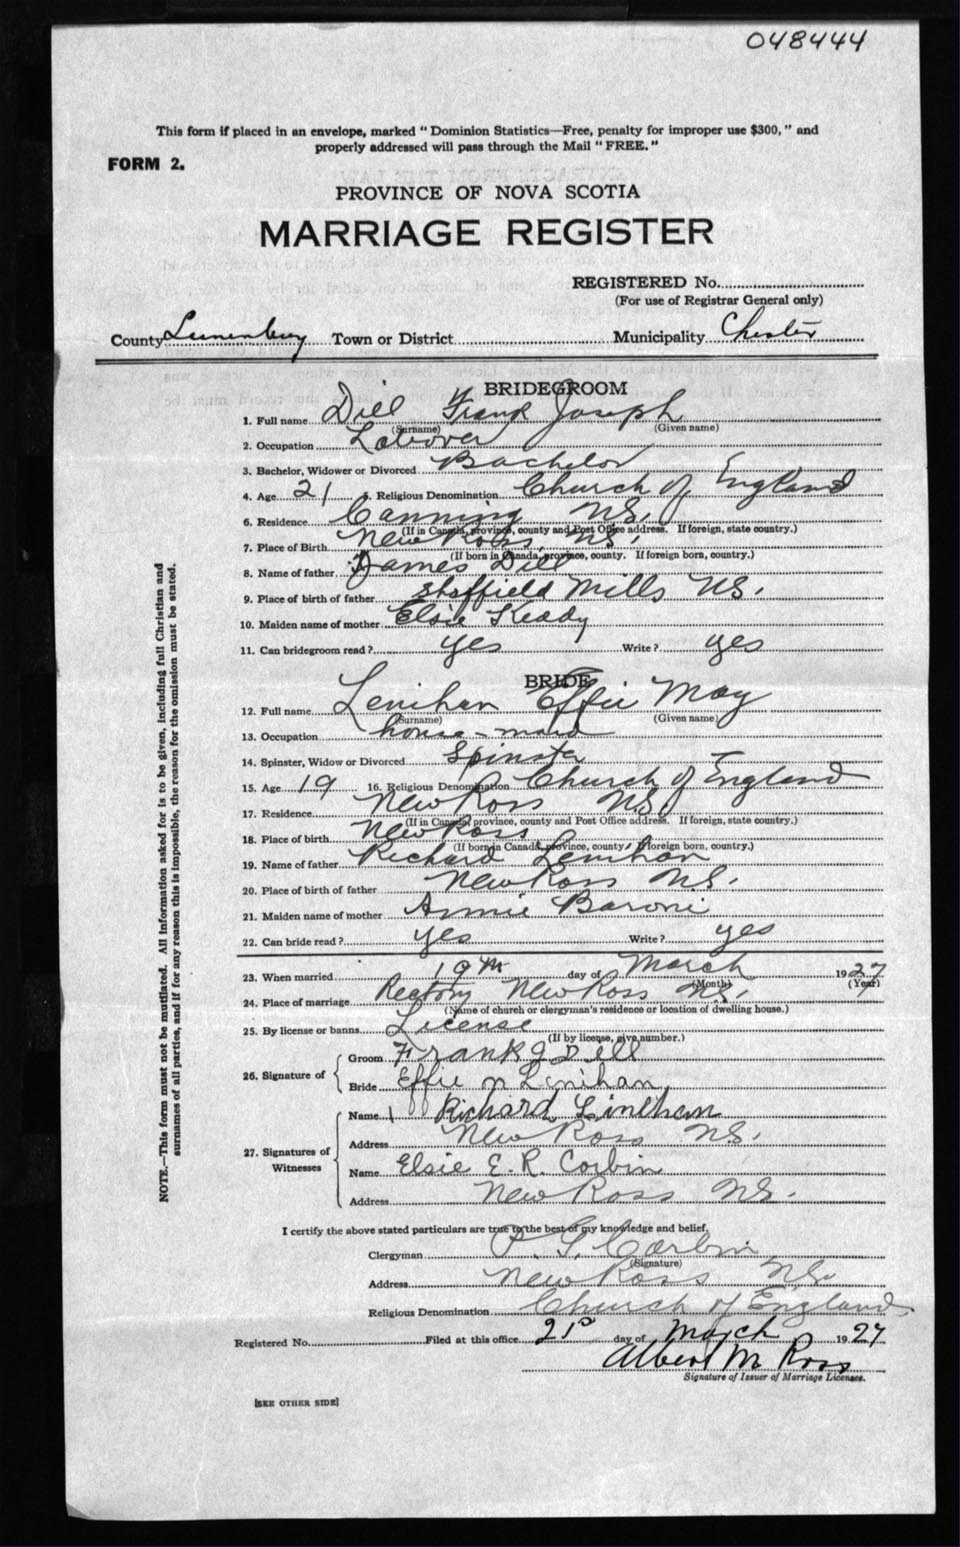 048444
This form if placed in an envelope, marked "Dominion Statistics—Free, penalty for improper use $300," and
properly addressed will pass through the Mail "FREE."
FORM 2.
PROVINCE OF NOVA SCOTIA
MARRIAGE REGISTER
REGISTERED No.
(For use of Registrar General only)
County Lunenburg Town or District Municipality Chester
BRIDEGROOM
1. Full name Dill Frank Joseph
(Surname) (Given name)
2. Occupation Laborer
3. Bachelor, Widower or Divorced Bachelor
4. Age 21 5. Religious Denomination Church of England
6. Residence Canning N.S.
(If in Canada, province, county and Post Office address. If foreign, state country.)
7. Place of Birth New Ross N.S.
(If born in Canada, province, county. If foreign born, country.)
8. Name of father James Dill
9. Place of birth of father Sheffield Mills N.S.
10. Maiden name of mother Elsie Keddy
11. Can bridegroom read? yes Write? yes
BRIDE
12. Full name Lenihan Effie May
(Surname) (Given name)
13. Occupation house-maid
14. Spinster, Widow or Divorced Spinster
15. Age 19 16. Religious Denomination Church of England
17. Residence New Ross N.S.
(If in Canada, province, county and Post Office address. If foreign, state country.)
18. Place of birth New Ross
(If born in Canada, province, county. If foreign born, country.)
19. Name of father Richard Lenihan
20. Place of birth of father New Ross N.S.
21. Maiden name of mother Annie Baroni
22. Can bride read? yes Write? yes
23. When married 19th day of March 1927
(Month) (Year)
24. Place of marriage Rectory New Ross N.S.
(Name of church or clergyman's residence or location of dwelling house.)
25. By license or banns License
(If by license, give number.)
26. Signature of
Groom Frank J Dill
Bride Effie M Lenihan
27. Signatures of Witnesses
Name Richard Linehan
Address New Ross N.S.
Name Elsie E. R. Corbin
Address New Ross N.S.
I certify the above stated particulars are true to the best of my knowledge and belief.
Clergyman Corbin
(Signature)
Address New Ross N.S.
Religious Denomination Church of England
Registered No. Filed at this office 21st day of March 1927
Albert M Ross
Signature of Issuer of Marriage Licenses.
[SEE OTHER SIDE]
NOTE.—This form must not be mutilated. All information asked for is to be given, including full Christian and
surnames of all parties, and if for any reason this is impossible, the reason for the omission must be stated.